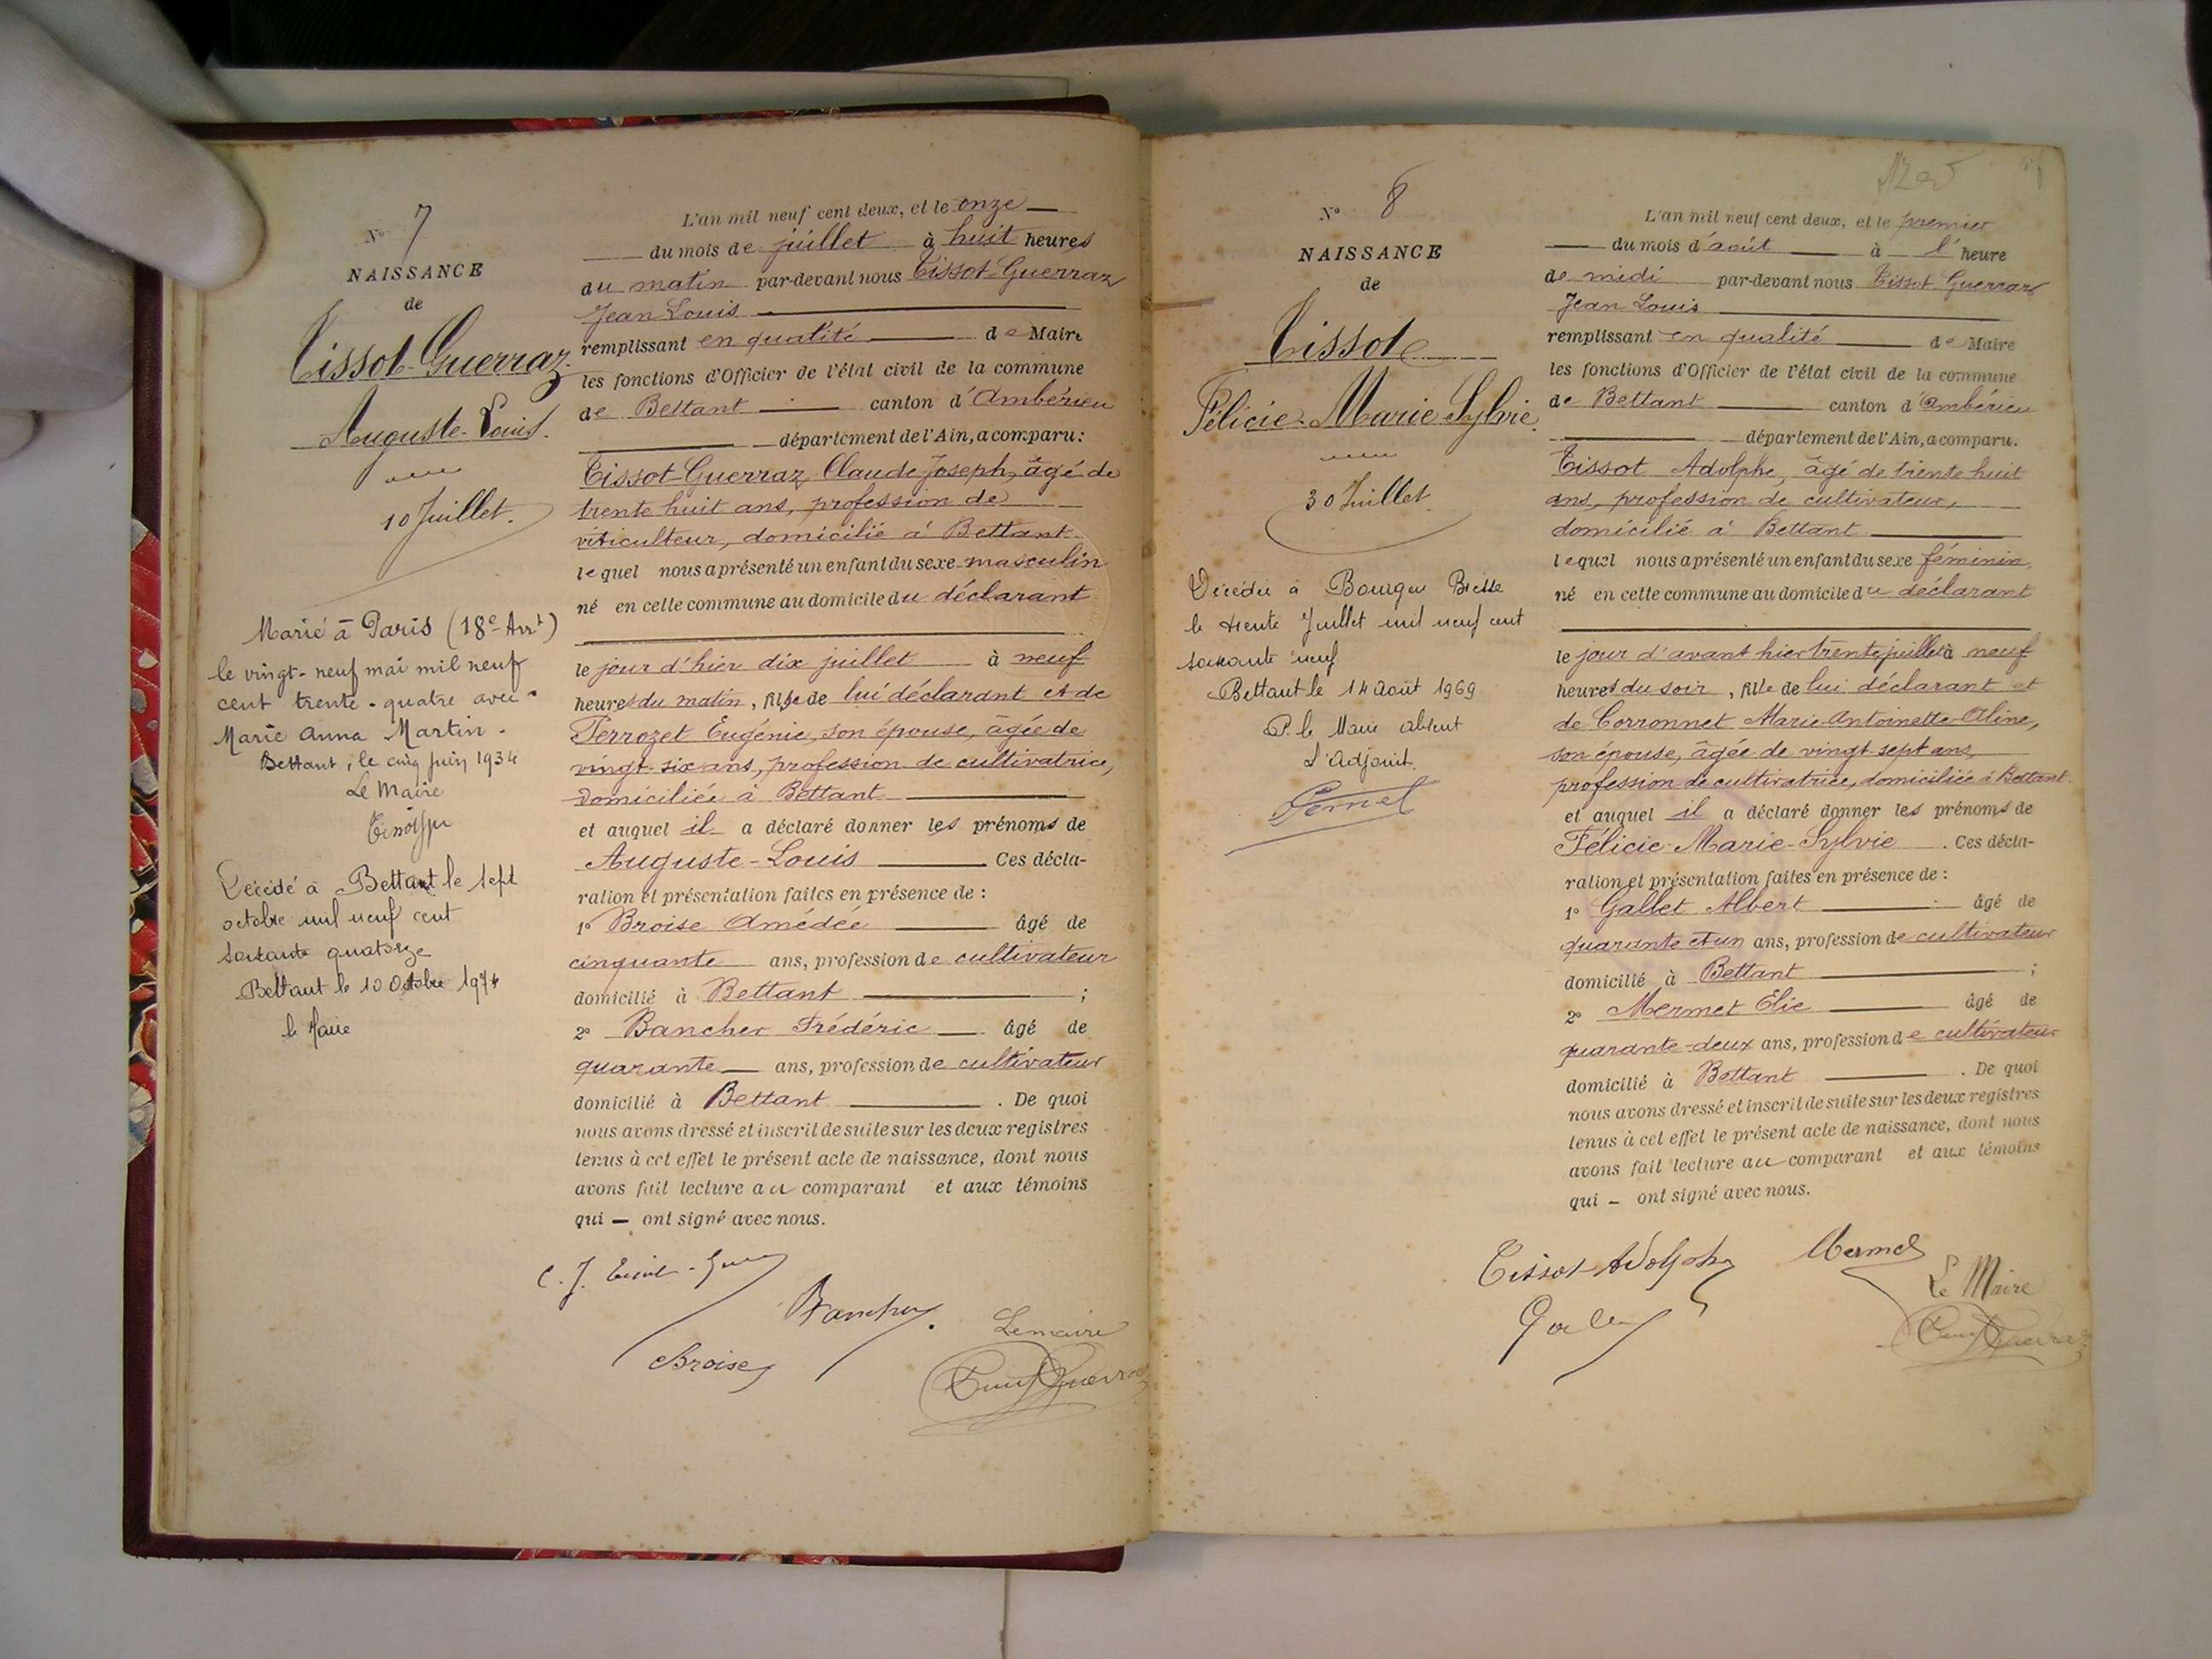 N° 7
NAISSANCE
de
Tissot-Guerraz
Auguste-Louis.
10 Juillet.
Marié à Paris (18e Arrt)
le vingt-neuf mai mil neuf
cent trente-quatre avec
Marie Anna Martin.
Bettant, le cinq juin 1934
Le Maire
Décédé à Bettant le sept
octobre mil neuf cent
soixante quatorze
Bettant le 10 Octobre 1974
le Maire
L'an mil neuf cent deux, et le onze
du mois de juillet à huit heures
du matin par-devant nous Tissot-Guerraz
Jean Louis
remplissant en qualité de Maire
les fonctions d'Officier de l'état civil de la commune
de Bettant canton d'Ambérieu
département de l'Ain, a comparu:
Tissot-Guerraz Claude Joseph, âgé de
trente huit ans, profession de
viticulteur, domicilié à Bettant
lequel nous a présenté un enfant du sexe masculin
né en cette commune au domicile du déclarant
le jour d'hier dix juillet à neuf
heures du matin, fils de lui déclarant et de
Perrozet Eugénie, son épouse, âgée de
vingt-six ans, profession de cultivatrice,
domiciliée à Bettant
et auquel il a déclaré donner les prénoms de
Auguste-Louis Ces décla-
ration et présentation faites en présence de :
1° Broise Amédée âgé de
cinquante ans, profession de cultivateur
domicilié à Bettant ;
2° Bancher Frédéric âgé de
quarante ans, profession de cultivateur
domicilié à Bettant . De quoi
nous avons dressé et inscrit de suite sur les deux registres
tenus à cet effet le présent acte de naissance, dont nous
avons fait lecture au comparant et aux témoins
qui — ont signé avec nous.
C. J. Tissot-Guerraz
Bancher
Broise
Le maire
Tissot Guerraz
N° 8
NAISSANCE
de
Tissot
Félicie-Marie-Sylvie.
30 Juillet.
Décédée à Bourg en Bresse
le trente Juillet mil neuf cent
soixante neuf.
Bettant le 14 Août 1969
P. le Maire absent
L'Adjoint.
L'an mil neuf cent deux, et le premier
du mois d'août à l'heure
de midi par-devant nous Tissot Guerraz
Jean Louis
remplissant en qualité de Maire
les fonctions d'Officier de l'état civil de la commune
de Bettant canton d'Ambérieu
département de l'Ain, a comparu.
Tissot Adolphe, âgé de trente huit
ans, profession de cultivateur,
domicilié à Bettant
lequel nous a présenté un enfant du sexe féminin,
né en cette commune au domicile du déclarant
le jour d'avant hier trente juillet à neuf
heures du soir, fille de lui déclarant et
de Corronnet Marie-Antoinette-Aline,
son épouse, âgée de vingt sept ans,
profession de cultivatrice, domiciliée à Bettant.
et auquel il a déclaré donner les prénoms de
Félicie-Marie-Sylvie . Ces décla-
ration et présentation faites en présence de :
1° Gallet Albert âgé de
quarante et un ans, profession de cultivateur
domicilié à Bettant ;
2° Mermet Elie âgé de
quarante-deux ans, profession de cultivateur
domicilié à Bettant . De quoi
nous avons dressé et inscrit de suite sur les deux registres
tenus à cet effet le présent acte de naissance, dont nous
avons fait lecture au comparant et aux témoins
qui — ont signé avec nous.
Tissot Adolphe Mermet
Le Maire
Tissot Guerraz